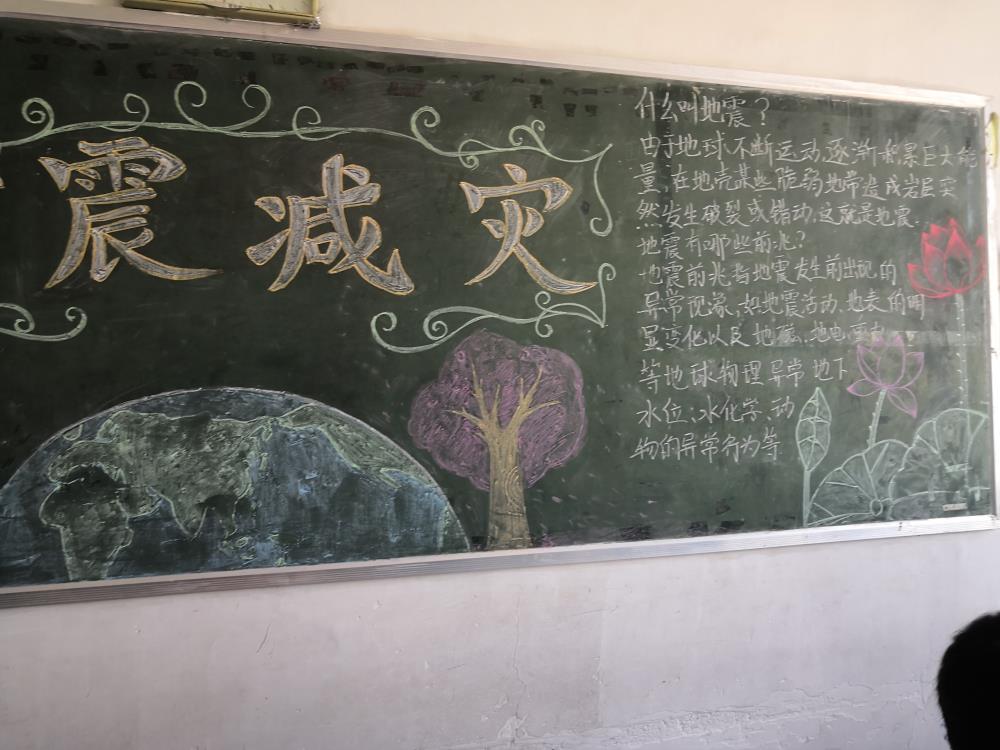 震减灾
什么叫地震?
由于地球不断运动,逐渐积累巨大能
量,在地壳某些脆弱地带造成岩层突
然发生破裂或错动,这就是地震.
地震有哪些前兆?
地震前兆指地震发生前出现的
异常现象,如地震活动、地表的明
显变化以及地磁、地电、重力
等地球物理异常地下
水位、水化学、动
物的异常行为等